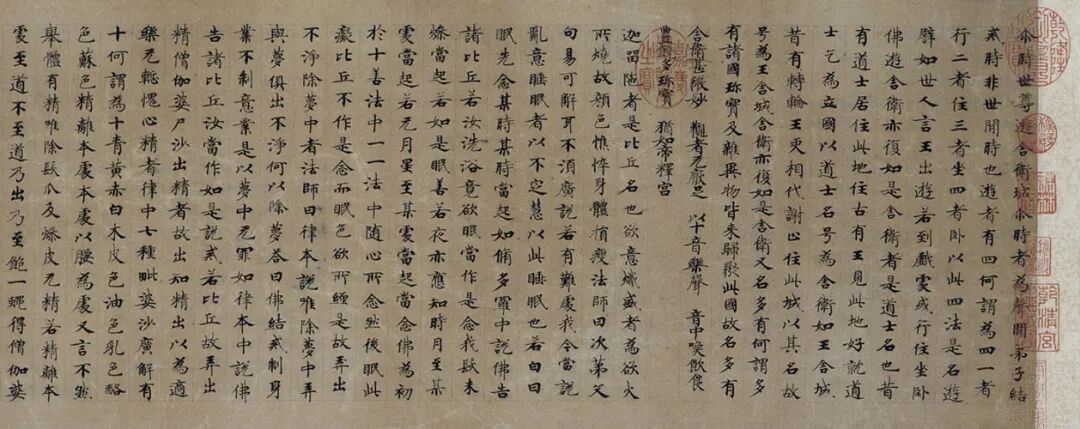 尒時世尊遊舍衛城尒時者為聲聞弟子結
戒時非世間時也遊者有四何謂為四一者
行二者住三者坐四者卧以此四法是名遊
譬如世人言王出遊若到戲處或行住坐卧
佛遊舍衛亦復如是舍衛者是道士名也昔
有道士居住此地住古有王見此地好就道
士乞為立國以道士名号為舍衛如王舍城
昔有轉輪王更相代謝止住此城以其名故
号為王舍城舍衛亦復如是舍衛又名多有何謂多
有諸國珎寶及雜異物皆來歸聚此國故名多有
舍衛甚微妙 觀者无厭足 以十音樂聲 音中喚飲食
豊饒多珎寶 猶如帝釋宮
迦留陁者是比丘名也欲意熾盛者為欲火
所燒故顏色憔悴身體損瘦法師曰次第文
句易可解耳不須廣說若有難處我今當說
亂意睡眠者以不定慧以此睡眠也若白日
眠先念某時某時當起如脩多羅中說佛告
諸比丘若汝洗浴竟欲眠當作是念我髮未
燥當起若如是眠善若夜亦應知時月至某
處當起若无月星至某處當起當念佛為初
於十善法中一一法中随心所念然後眠此
癡比丘不作是念而眠色欲所纏是故弄出
不淨除夢中者法師曰律本說唯除夢中弄
與夢俱出不淨何以除夢荅曰佛結戒制身
業不制意業是以夢中无罪如律本中說佛
告諸比丘汝當作如是說戒若比丘故弄出
精僧伽婆尸沙出精者故出知精出以為適
樂无慙愧心精者律中七種毗婆沙廣解有
十何謂為十青黃赤白木皮色油色乳色酪
色蘇色精離本處本處以腰為處又言不然
舉體有精唯除髮爪及燥皮无精若精離本
處至道不至道乃出乃至飽一蠅得僧伽婆
乾清宮